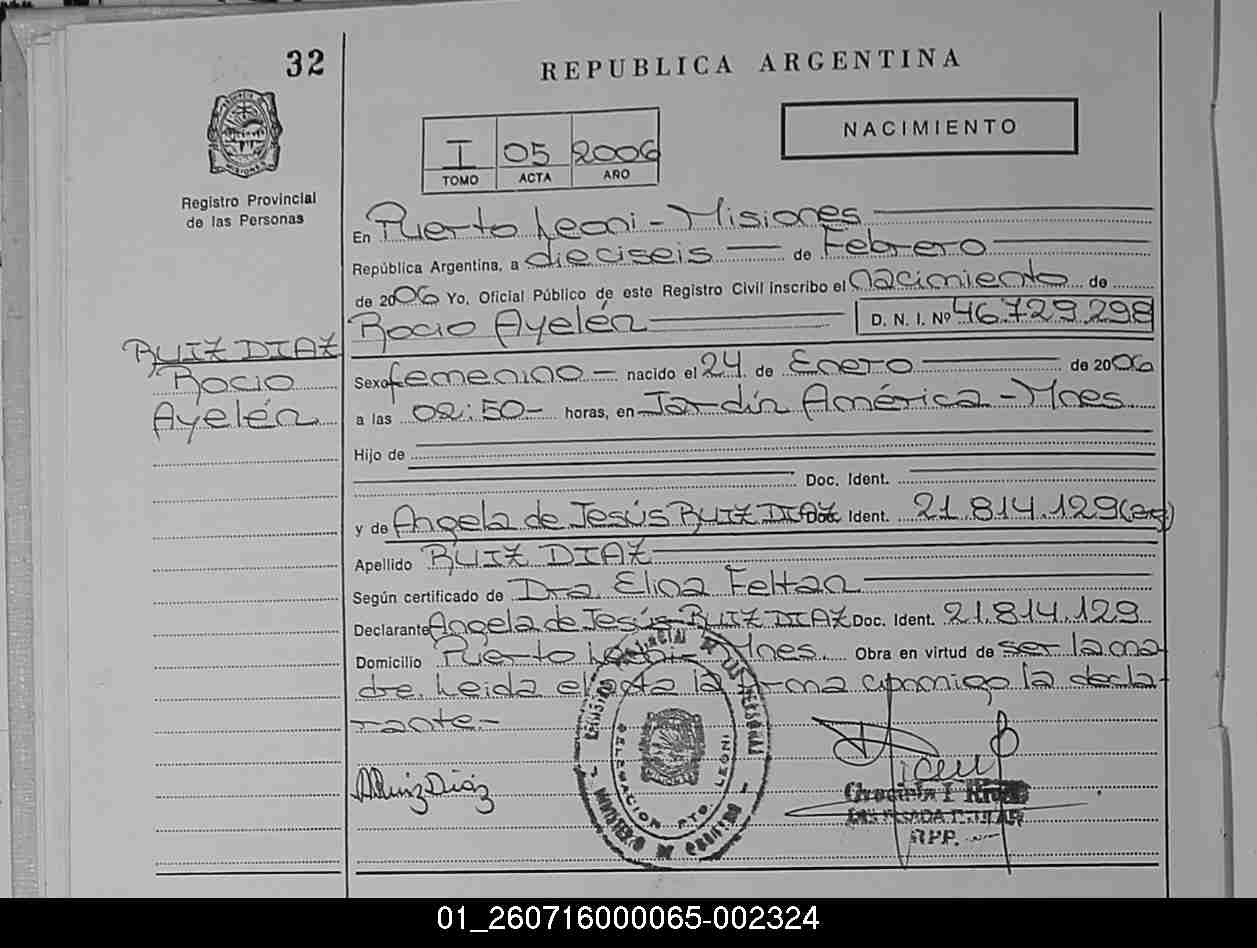 32
REPUBLICA ARGENTINA
I 05 2006
TOMO ACTA AÑO
NACIMIENTO
Registro Provincial
de las Personas
En Puerto Leoni - Misiones
República Argentina, a dieciseis de Febrero
de 2006 Yo, Oficial Público de este Registro Civil inscribo el nacimiento de
Rocio Ayelén D. N. I. Nº 46.729.298
RUIZ DIAZ
Rocio
Ayelén
Sexo femenino - nacido el 24 de Enero de 2006
a las 02:50- horas, en Jardín América - Mnes
Hijo de
Doc. Ident.
y de Angela de Jesús RUIZ DIAZ Doc. Ident. 21.814.129 (arg)
Apellido RUIZ DIAZ
Según certificado de Dra. Elina Feltan
Declarante Angela de Jesús RUIZ DIAZ Doc. Ident. 21.814.129
Domicilio Puerto Leoni - Mnes. Obra en virtud de ser la ma
dre. Leida el acta la firma conmigo la decla-
rante.-
ARuiz Diaz
DELEGACION PTO. LEONI
MINISTERIO DE GOBIERNO
DELEGADA TITULAR
RPP.
01_260716000065-002324